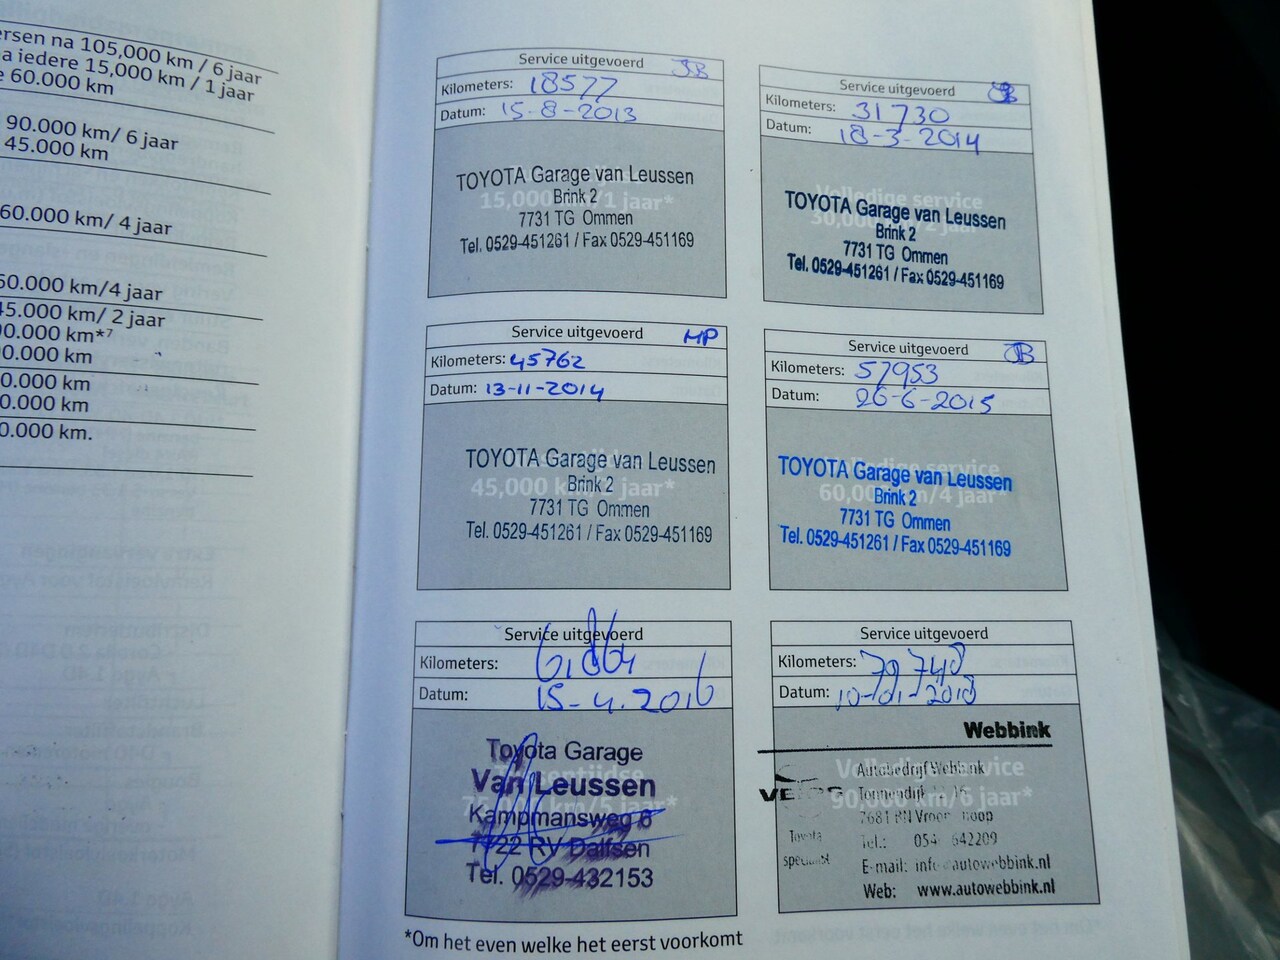 ersen na 105,000 km / 6 jaar
a iedere 15,000 km / 1 jaar
e 60.000 km
90.000 km/ 6 jaar
45.000 km
60.000 km/ 4 jaar
60.000 km/4 jaar
45.000 km/ 2 jaar
90.000 km*7
90.000 km
0.000 km
0.000 km
0.000 km.
Service uitgevoerd JB
Kilometers: 18577
Datum: 15-8-2013
15,000 km/1 jaar*
TOYOTA Garage van Leussen
Brink 2
7731 TG Ommen
Tel. 0529-451261 / Fax 0529-451169
Service uitgevoerd
Kilometers: 31730
Datum: 18-3-2014
Volledige service
30,000 km/2 jaar*
TOYOTA Garage van Leussen
Brink 2
7731 TG Ommen
Tel. 0529-451261 / Fax 0529-451169
Service uitgevoerd MP
Kilometers: 45762
Datum: 13-11-2014
45,000 km/ jaar*
TOYOTA Garage van Leussen
Brink 2
7731 TG Ommen
Tel. 0529-451261 / Fax 0529-451169
Service uitgevoerd JB
Kilometers: 57953
Datum: 26-6-2015
Volledige service
60,000 km/4 jaar*
TOYOTA Garage van Leussen
Brink 2
7731 TG Ommen
Tel. 0529-451261 / Fax 0529-451169
Service uitgevoerd
Kilometers:
Datum: 15-4-2016
Tussentijdse
75,000 km/5 jaar*
Toyota Garage
Van Leussen
Kampmansweg 6
7722 RV Dalfsen
Tel. 0529-432153
Service uitgevoerd
Kilometers: 79.748
Datum: 10-01-2018
Volledige service
90,000 km/6 jaar*
Webbink
Autobedrijf Webbink
Tonnendijk
7681 BN Vroomshoop
Toyota
specialist
Tel.: 642209
E-mail: info@autowebbink.nl
Web: www.autowebbink.nl
*Om het even welke het eerst voorkomt